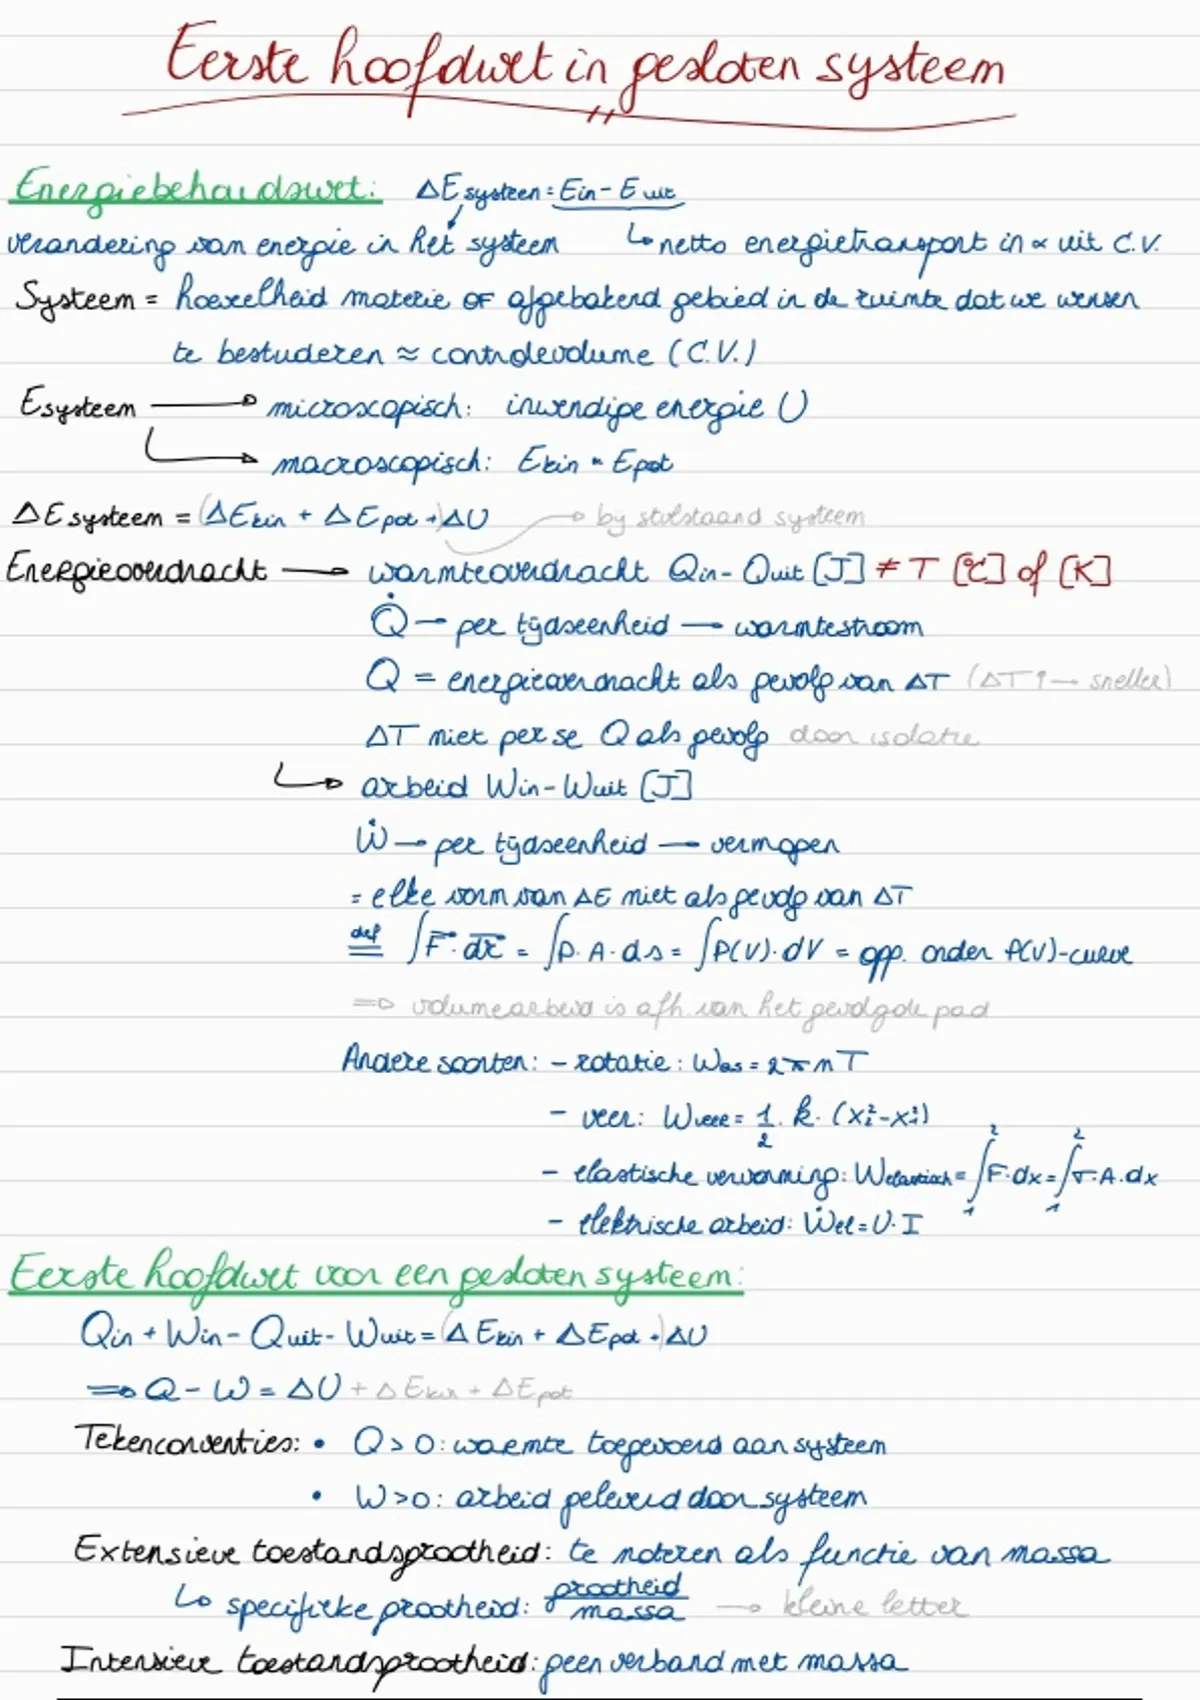 Eerste hoofdwet in gesloten systeem
Energiebehoudswet: ΔEsysteem = Ein - Euit
verandering van energie in het systeem ↳ netto energietransport in & uit C.V.
Systeem = hoeveelheid materie OF afgebakend gebied in de ruimte dat we wensen
te bestuderen ≈ controlevolume (C.V.)
Esysteem → microscopisch: inwendige energie U
↳ macroscopisch: Ekin & Epot
ΔEsysteem = (ΔEkin + ΔEpot +) ΔU → bij stilstaand systeem
Energieoverdracht → warmteoverdracht Qin - Quit [J] ≠ T [°C] of [K]
Q̇ → per tijdseenheid → warmtestroom
Q = energieoverdracht als gevolg van ΔT (ΔT↑ → sneller)
ΔT niet per se Q als gevolg door isolatie
↳ arbeid Win - Wuit [J]
Ẇ → per tijdseenheid → vermogen
= elke vorm van ΔE niet als gevolg van ΔT
def= ∫F⃗·dx⃗ = ∫P·A·ds = ∫P(V)·dV = opp. onder P(V)-curve
⇒ volumearbeid is afh. van het gevolgde pad
Andere soorten: - rotatie: Was = 2πnT
- veer: Wveer = 1/2 · k · (x₂² - x₁²)
- elastische vervorming: Welastisch = ∫₁² F·dx = ∫₁² σ·A·dx
- elektrische arbeid: Ẇel = U·I
Eerste hoofdwet voor een gesloten systeem:
Qin + Win - Quit - Wuit = (ΔEkin + ΔEpot +) ΔU
⇒ Q - W = ΔU + ΔEkin + ΔEpot
Tekenconventies: • Q > 0: warmte toegevoerd aan systeem
• W > 0: arbeid geleverd door systeem
Extensieve toestandsgrootheid: te noteren als functie van massa
↳ specifieke grootheid: grootheid/massa → kleine letter
Intensieve toestandsgrootheid: geen verband met massa